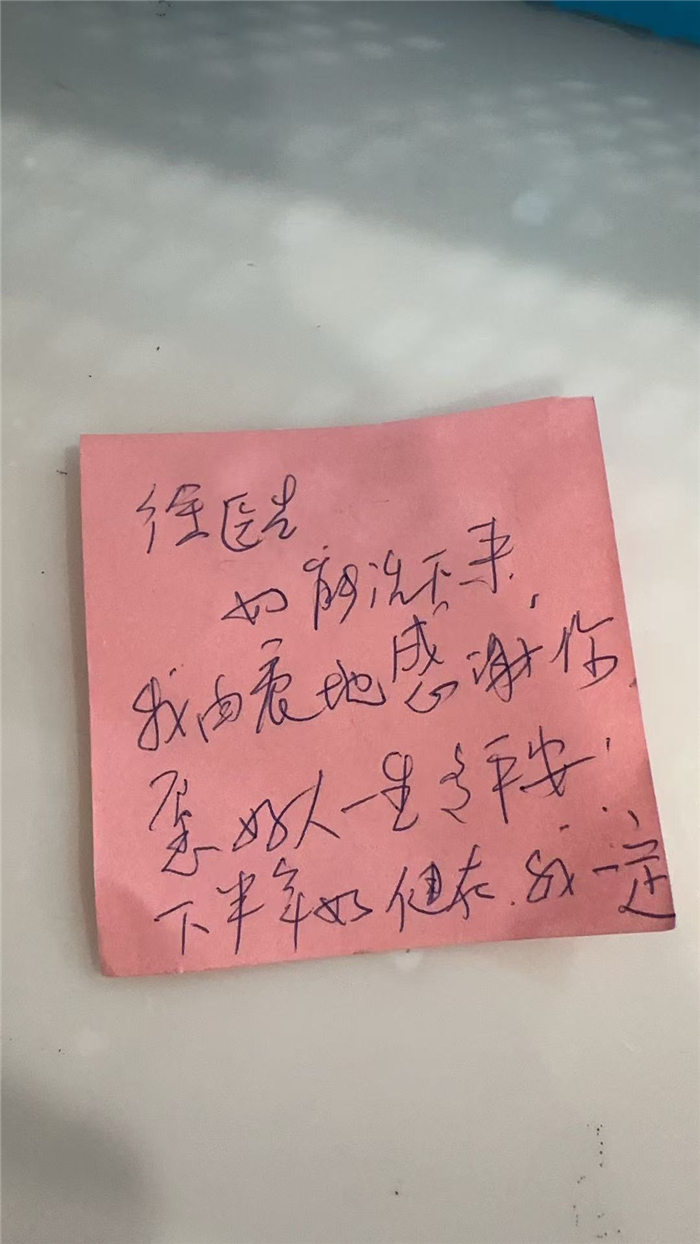 徐医生
如能洗下来,
我由衷地感谢你,
愿好人一生多平安!
下半年如健在,我一定